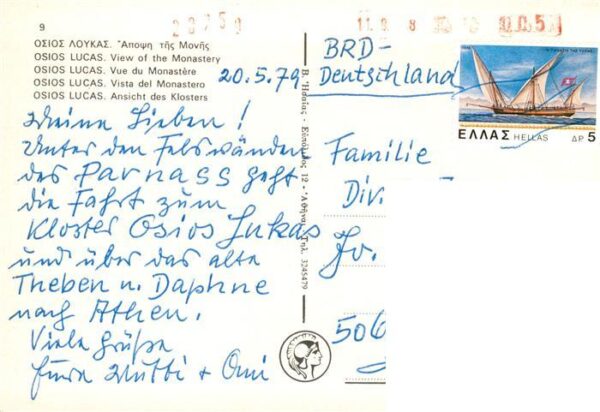 9
ΟΣΙΟΣ ΛΟΥΚΑΣ. Ἄποψη τῆς Μονῆς
OSIOS LUCAS. View of the Monastery
OSIOS LUCAS. Vue du Monastère
OSIOS LUCAS. Vista del Monastero
OSIOS LUCAS. Ansicht des Klosters
20.5.79
Meine Lieben!
Unter den Felswänden
des Parnass geht
die Fahrt zum
Kloster Osios Lukas
und über das alte
Theben u. Daphne
nach Athen.
Viele Grüße
Eure Mutti + Omi
12 - Ἀθήναι Τηλ. 3245479
BRD-
Deutschland
ΕΛΛΑΣ HELLAS ΔΡ 5
Familie
Div.
506